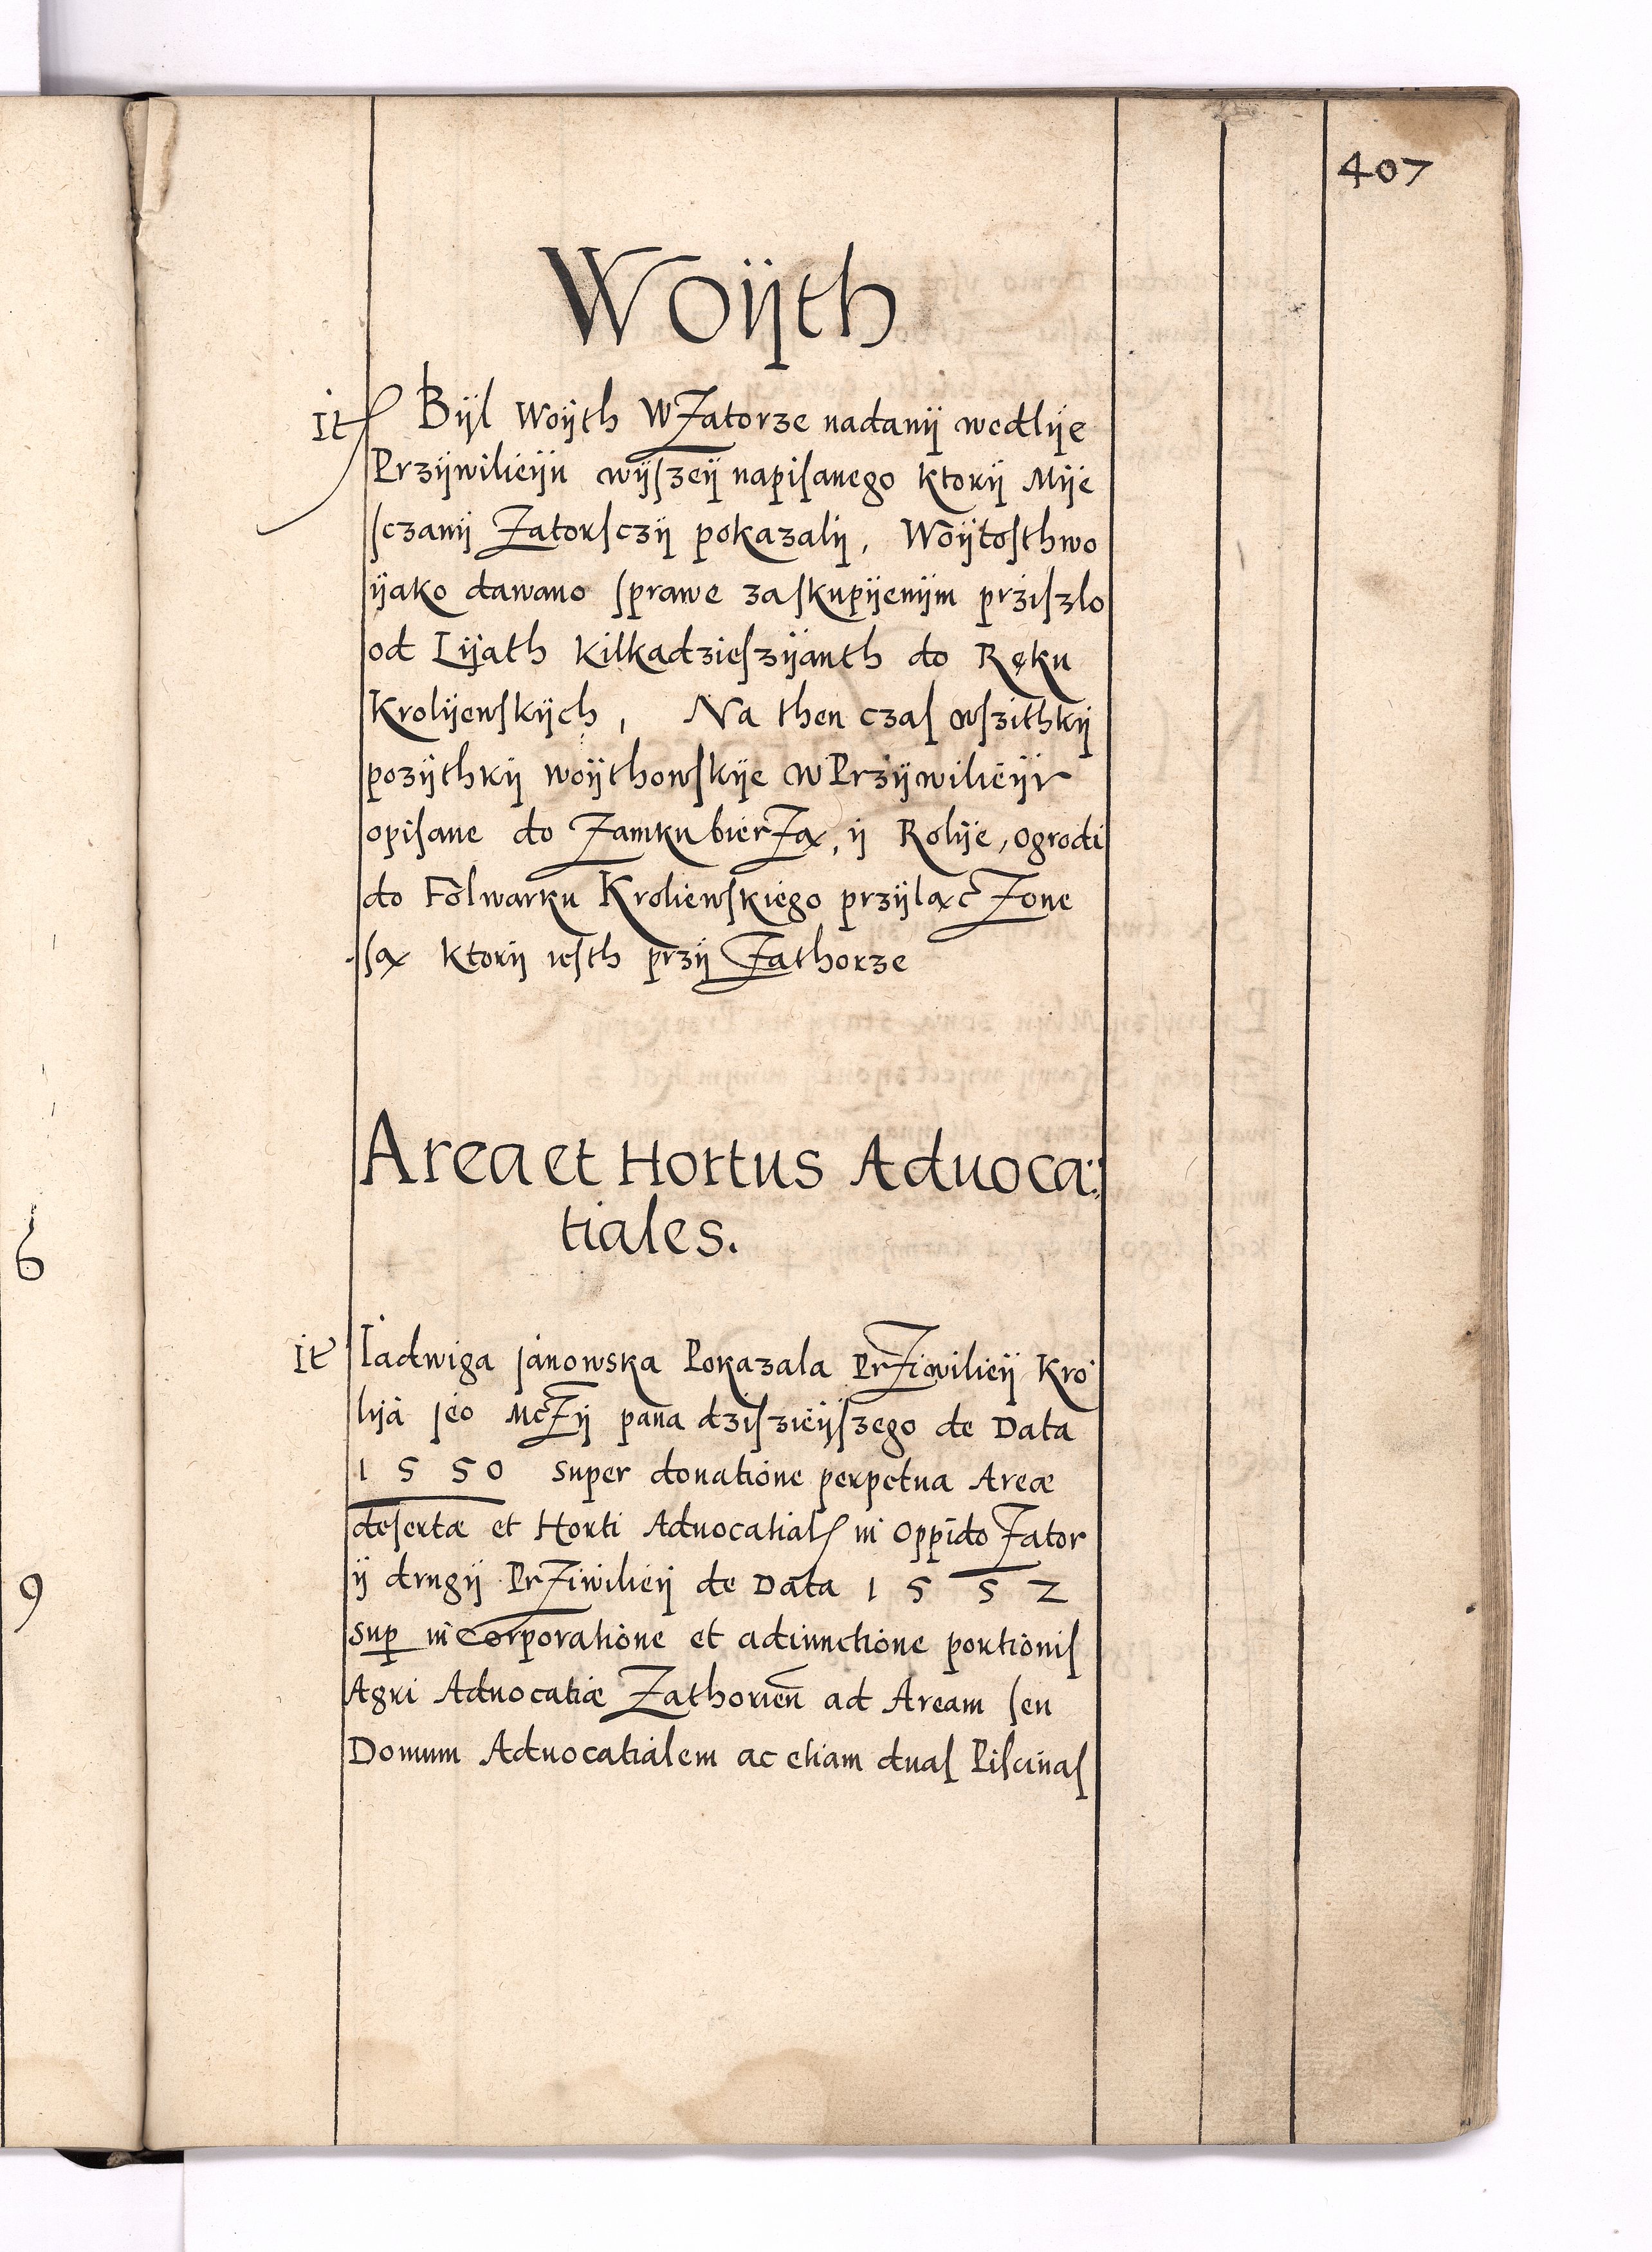 407
Woÿth
It Bÿl Woÿth WZatorze nadanÿ wedlÿe
Przÿwilieÿu wÿſzeÿ napiſanego Ktorÿ Mÿe
ſczanÿ Zatorſczÿ pokazalÿ, Woÿtoſthwo
ÿako dawano ſprawe zaſkupÿenÿm prziſzlo
od Lÿath Kilkadzieſzÿanth do Ręku
Krolÿewſkÿch, Na then czaſ wſzithkÿ
pozÿthkÿ woÿthowſkÿe WPrzÿwilieÿv
opiſane do Zamku bierZą, ÿ Rolÿe, ogrodi
do Folwarku Kroliewſkiego przÿlącZone
ſą Ktorÿ ieſth przÿ Zathorze
Area et Hortus Aduoca:
tiales.
It Iadwiga Janowska Pokazala PrZiwilieÿ Kro
lÿa Jeo McZÿ pana dziſzieÿſzego de Data
1550 super donatione perpetua Areæ
deſertæ et Horti Aduocatialſ in Oppido Zator
ÿ drugÿ PrZiwilieÿ de Data 1552
sup incorporatione et adiunctione portioniſ
Agri Aduocatiæ Zathorien̄ ad Aream ſeu
Domum Aduocatialem ac etiam duaſ Piſcinaſ
6
9